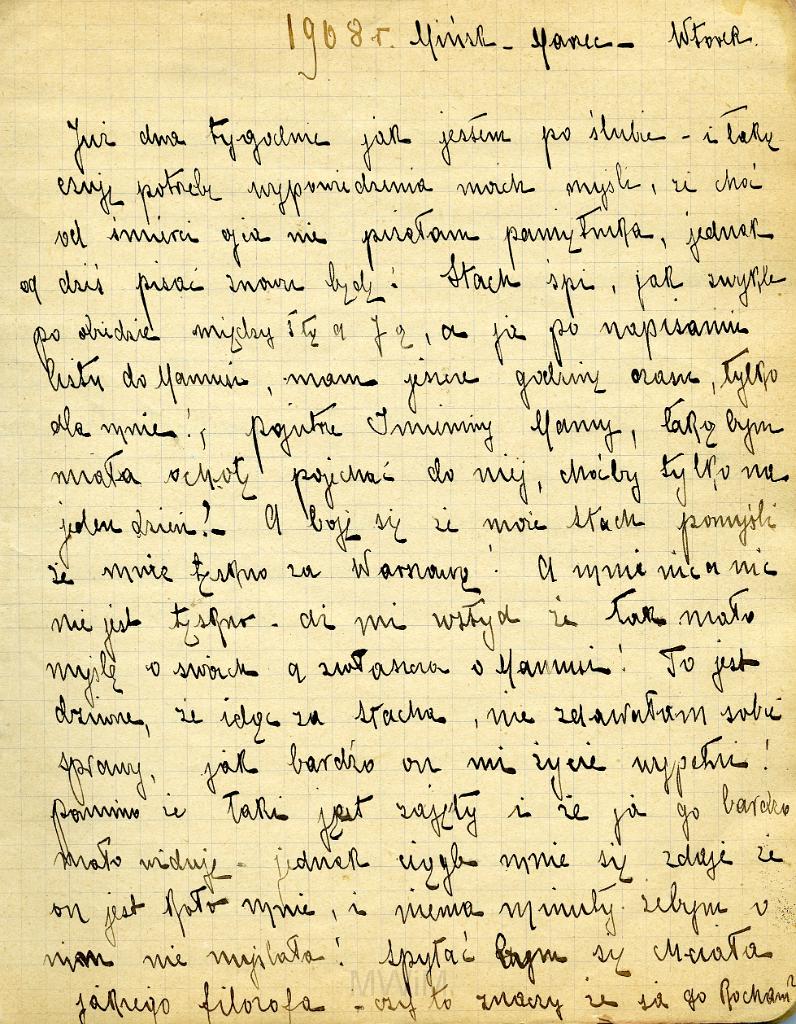 1908 r. Mińsk - Marzec - Wtorek.
Już dwa tygodnie jak jestem po ślubie - i taką
czuję potrzebę wypowiedzenia moich myśli, że choć
od śmierci ojca nie pisałam pamiętnika, jednak
od dziś pisać znowu będę! Stach śpi, jak zwykle
po obiedzie między 5tą a 7ą, a ja po napisaniu
listu do Mamusi, mam jeszcze godzinę czasu, tylko
dla mnie!, pojutrze Imieniny Mamy, taką bym
miała ochotę pojechać do niej, choćby tylko na
jeden dzień! - A boję się że może Stach pomyśli
że mnie tęskno za Warszawą! A mnie nic a nic
nie jest tęskno - aż mi wstyd że tak mało
myślę o swoich a zwłaszcza o Mamusi! To jest
dziwne, że idąc za Stacha, nie zdawałam sobie
sprawy, jak bardzo on mi życie wypełni!
pomimo że taki jest zajęty i że ja go bardzo
mało widuję - jednak ciągle mnie się zdaje że
on jest koło mnie, i niema minuty żebym o
nim nie myślała! Spytać bym się chciała
jakiego filozofa - czy to znaczy że ja go kocham?
MWiM